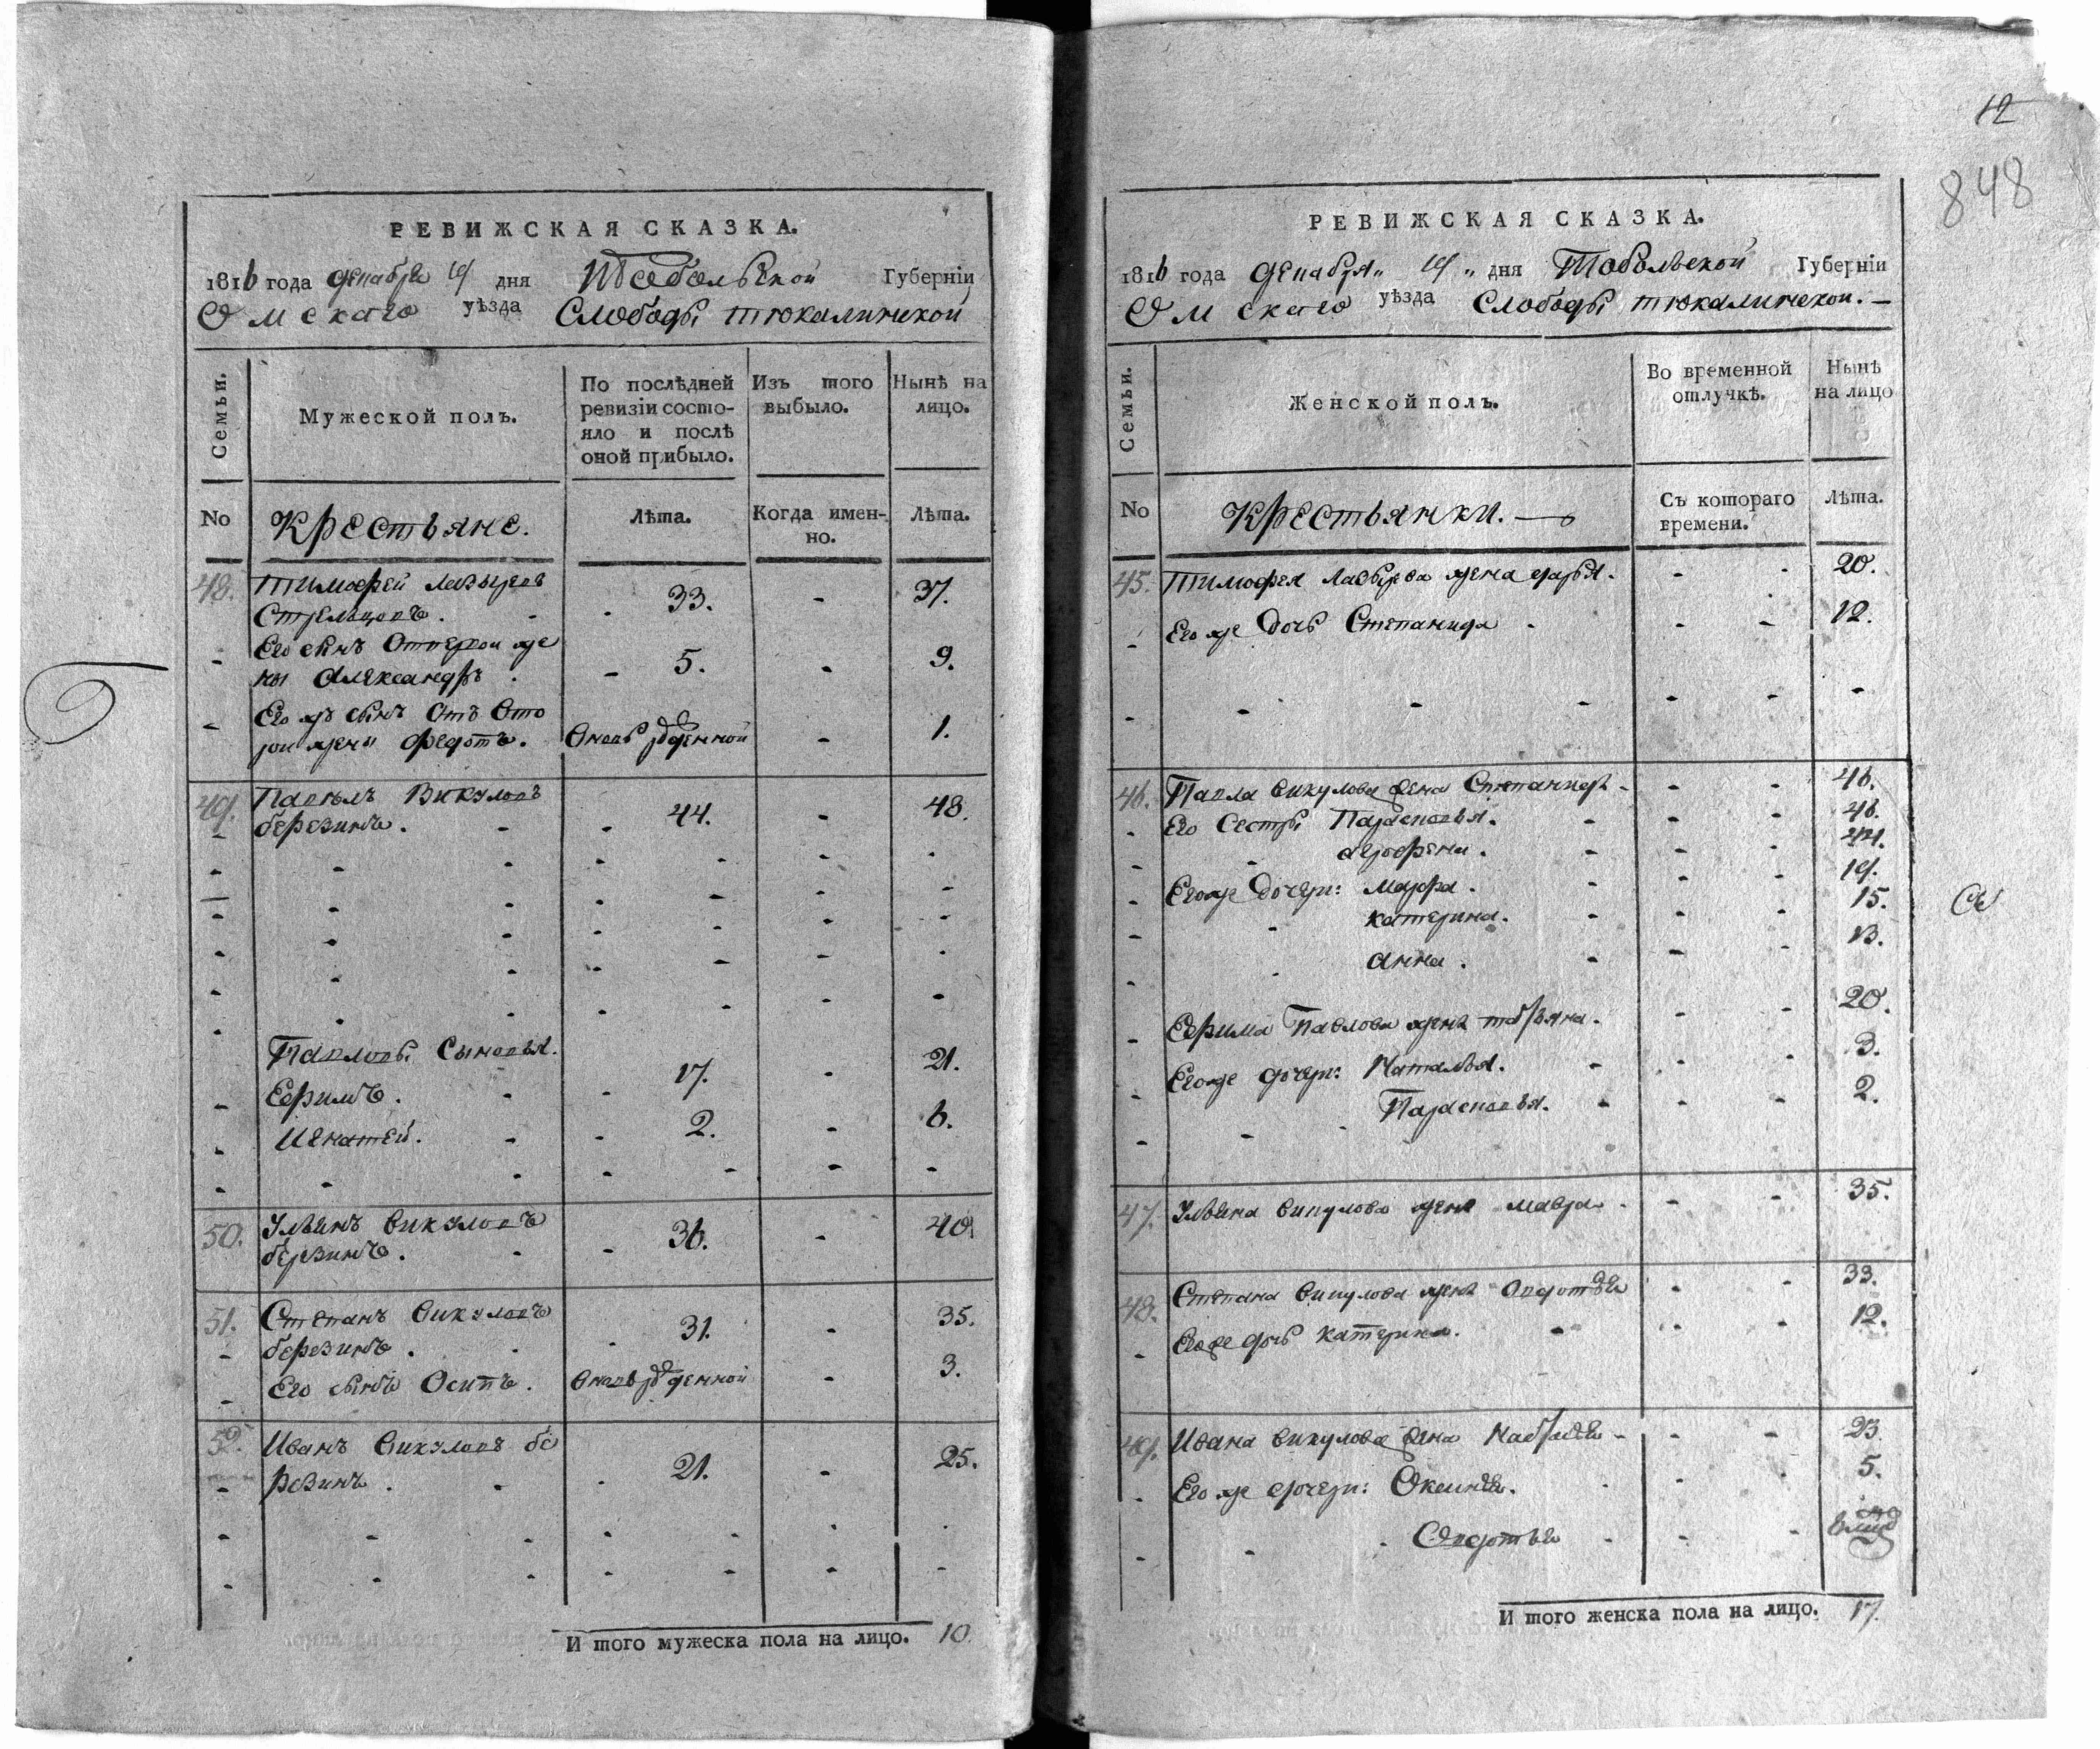 РЕВИЖСКАЯ СКАЗКА.
1816 года декабря 19 дня Тобольской Губерніи
Омскаго уѣзда Слободы тюкалинской
Семьи.
Мужеской полъ.
По послѣдней ревизіи состо-
яло и послѣ
оной прибыло.
Изъ того выбыло.
Нынѣ на лицо.
No
Крестьяне.
Лѣта.
Когда имен-
но.
Лѣта.
48. Тимофей
Стрельцовъ. 33. 37.
Его сынъ Отпервой же
ны Александръ 5. 9.
Его жъ сынъ Отъ Вто
рои жены Федотъ. Вновь рожденной 1.
49. Павелъ Викуловъ
березинъ. 44. 48.
Павловы Сыновья.
Ефимъ. 17. 21.
Игнатей. 2. 6.
50. Ульянъ Викуловъ
березинъ. 36. 40.
51. Степанъ Викуловъ
березинъ. 31. 35.
Его сынъ Осипъ. Вновь рожденной 3.
52. Иванъ Викуловъ бе
резинъ. 21. 25.
И того мужеска пола на лицо. 10.
12
848
РЕВИЖСКАЯ СКАЗКА.
1816 года декабря 19 дня Тобольской Губерніи
Омскаго уѣзда Слободы тюкалинской.
Семьи.
Женской полъ.
Во временной
отлучкѣ.
Нынѣ
на лицо
No
Крестьянки.
Съ котораго
времени.
Лѣта.
45. Тимофея жена дарья. 20.
Его же дочь Степанида 12.
46. Павла Викулова жена Степанида 46.
Его Сестры Парасковья. 46.
афрофени. 44.
Егоже Дочери: Марфа. 19.
катерина. 15.
анна. 13.
Ефима Павлова жена татьяна. 20.
Егоже дочери: Наталья. 3.
Парасковья. 2.
47. Ульяна Викулова жена мавра 35.
48. Степана Викулова жена Авдотья 33.
Егоже дочь катерина. 12.
49. Ивана Викулова жена 23.
Его же дочери: Оксинья. 5.
Овдотья
И того женска пола на лицо. 17.